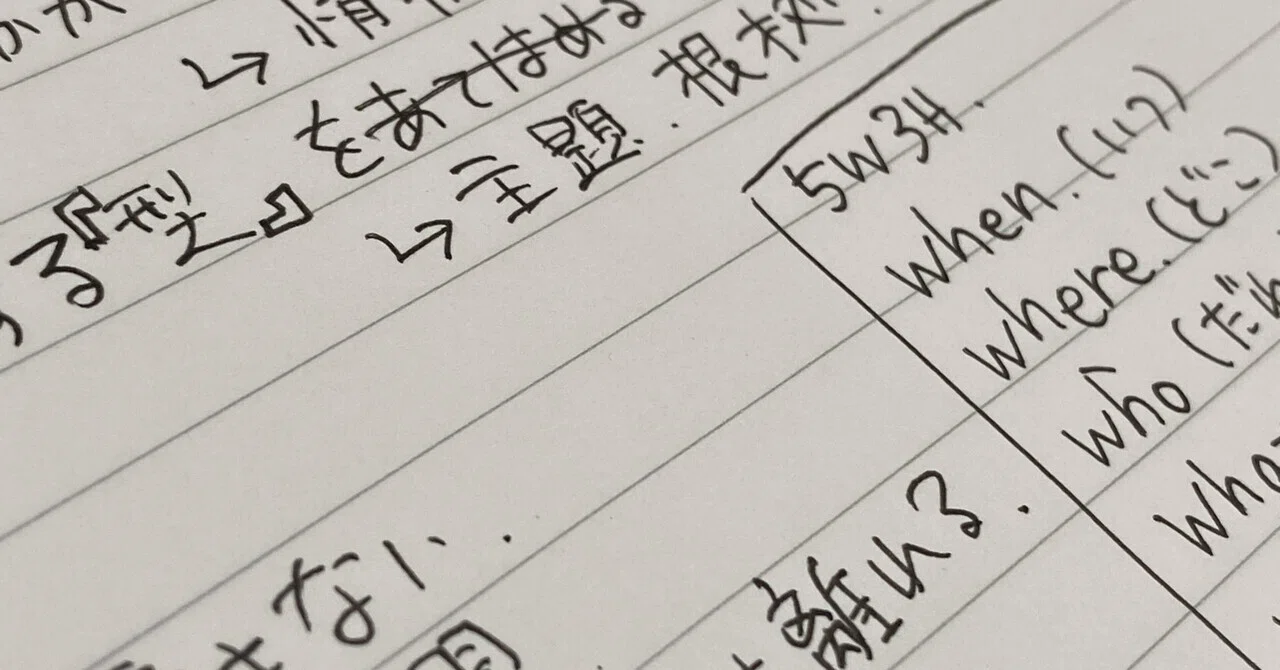 → 情
る『型』をあてはめる
→ 主題.根拠.
ない.
離れる.
5W3H.
when.(いつ)
where.(どこ)
who (だれ
wha